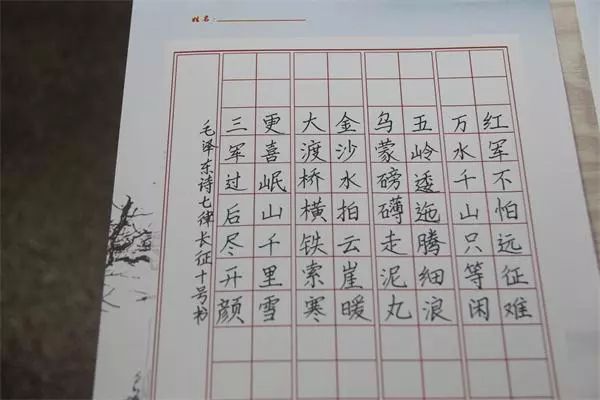 姓名：
红军不怕远征难
万水千山只等闲
五岭逶迤腾细浪
乌蒙磅礴走泥丸
金沙水拍云崖暖
大渡桥横铁索寒
更喜岷山千里雪
三军过后尽开颜
毛泽东诗七律长征十号书